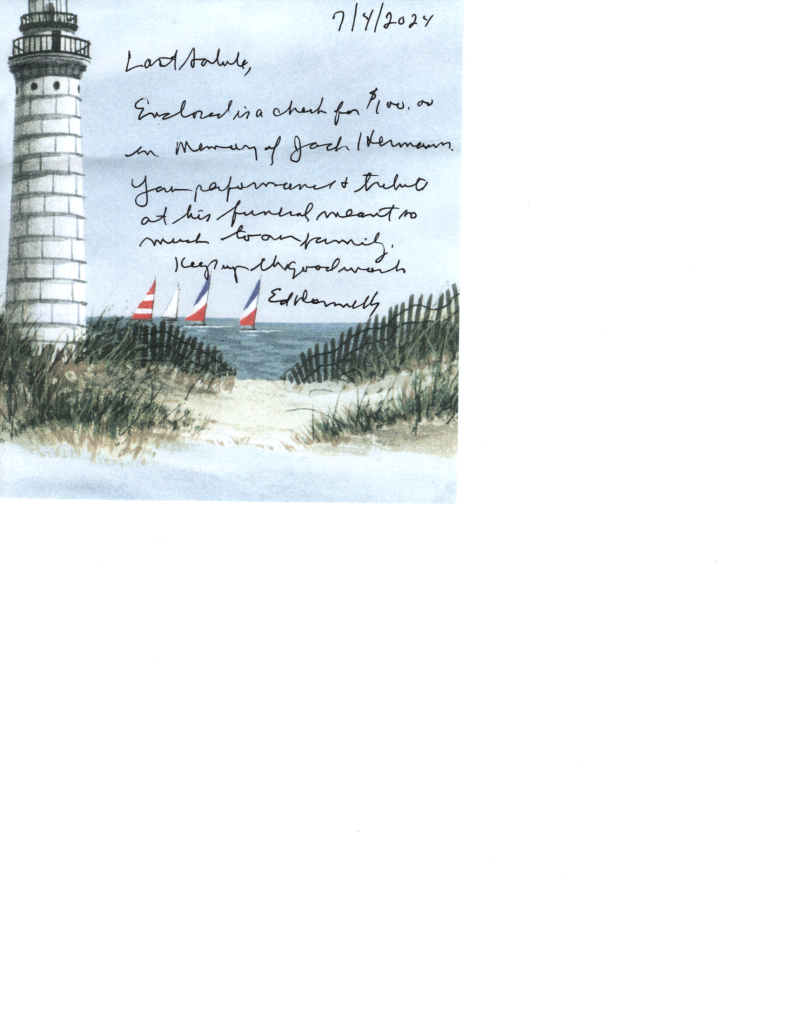 7/4/2024
Last Salute,
Enclosed is a check for $100.00
in Memory of Jack Hermann.
Your performance & tribute
at his funeral meant so
much to our family.
Keep up the good work
Ed